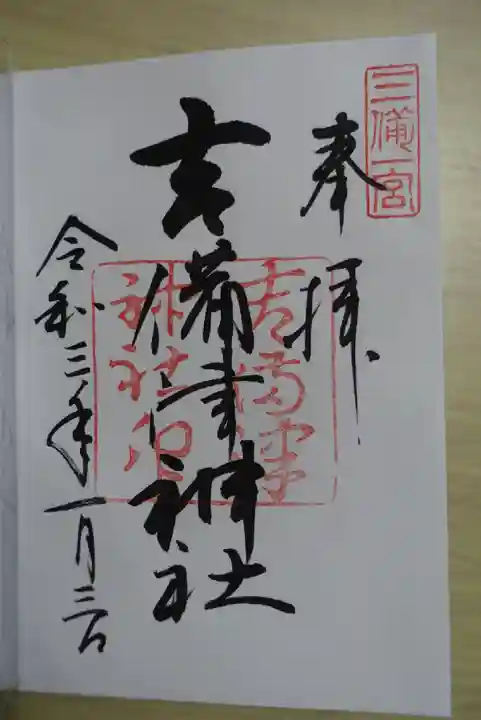 三備一宮
奉拝
吉備津神社
吉備津
神社印
令和三年一月三日